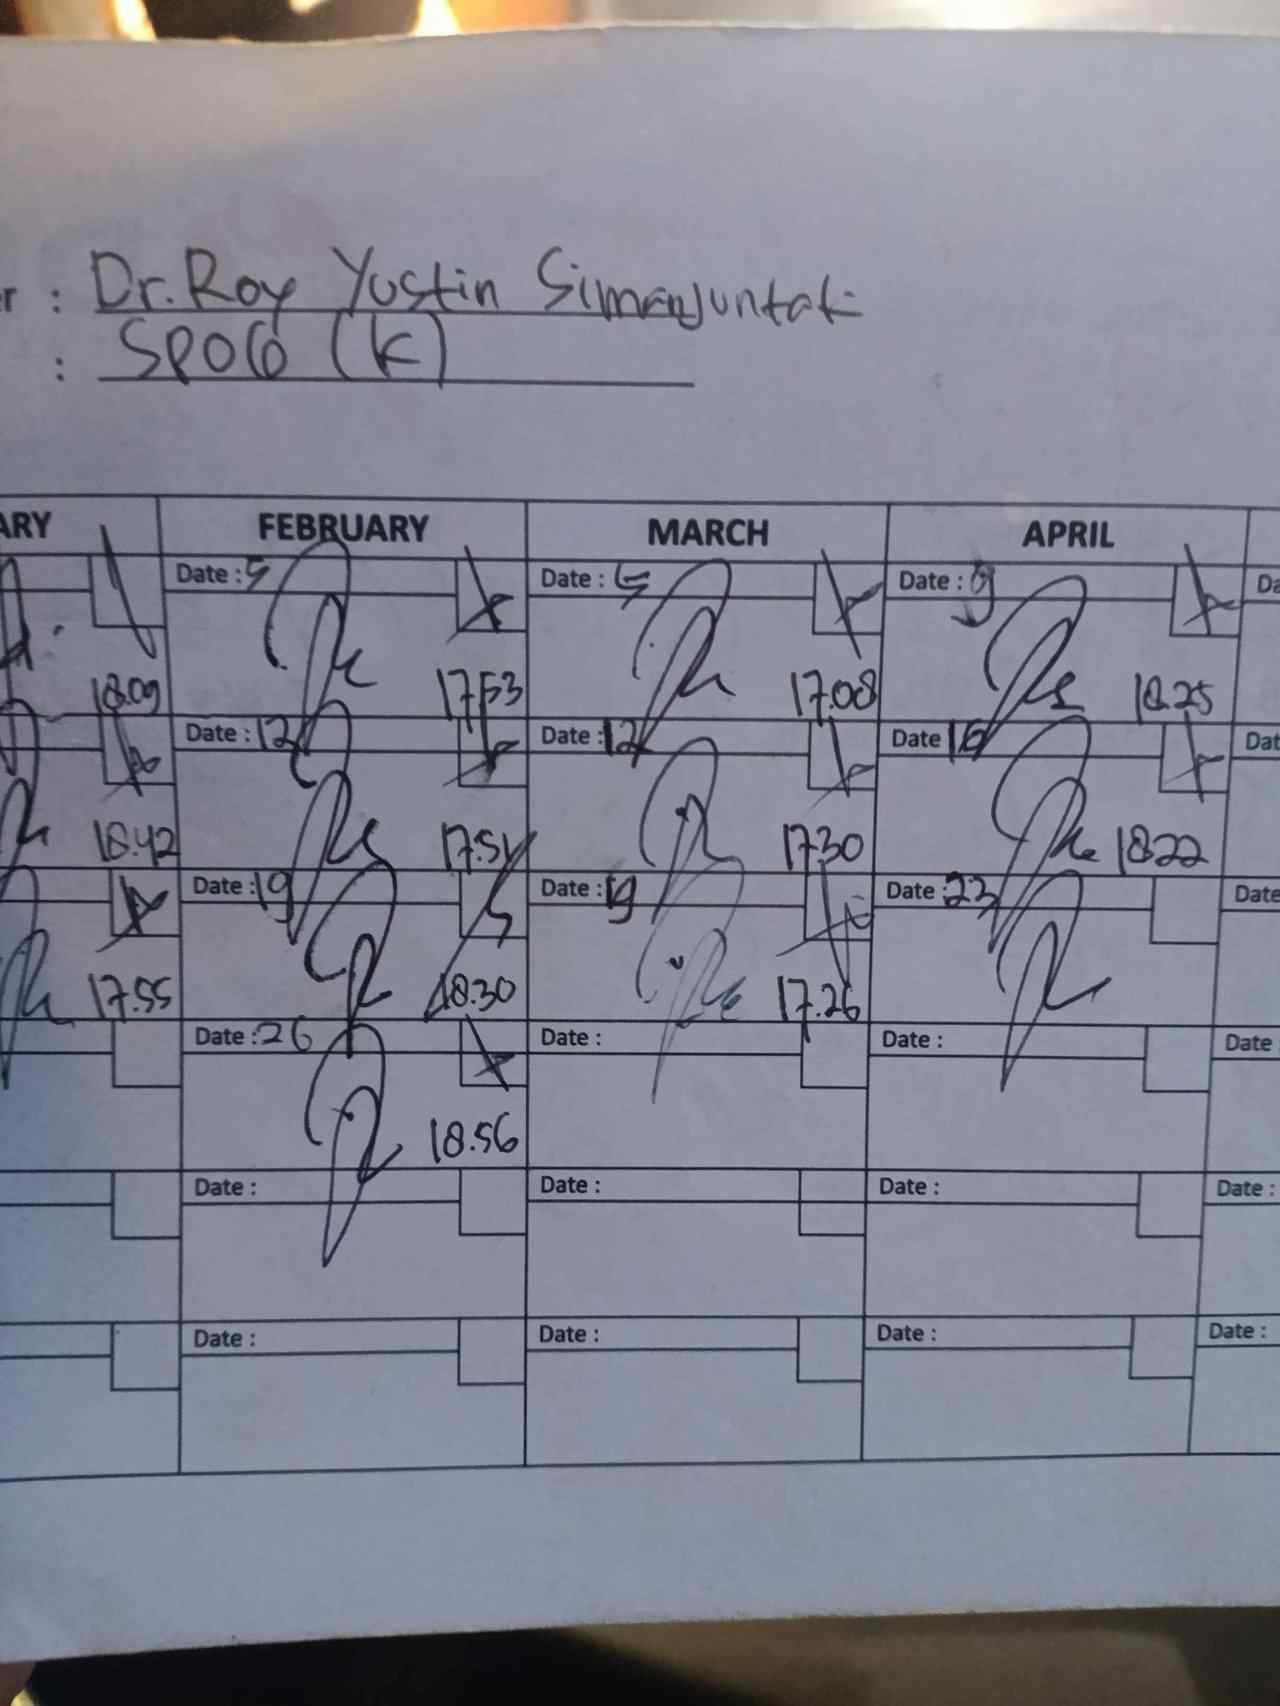 r : Dr. Roy Yustin Simanjuntak
: SPOG (K)
ARY FEBRUARY MARCH APRIL
Date : 5 Date : 5 Date : 9 Da
18.09 17.53 17.08 18.25
Date : 12 Date : 12 Date 16 Dat
18.42 17.51 17.30 18.22
Date : 19 Date : 19 Date : 23 Date
17.55 18.30 17.26
Date : 26 Date : Date : Date
18.56
Date : Date : Date : Date :
Date : Date : Date : Date :